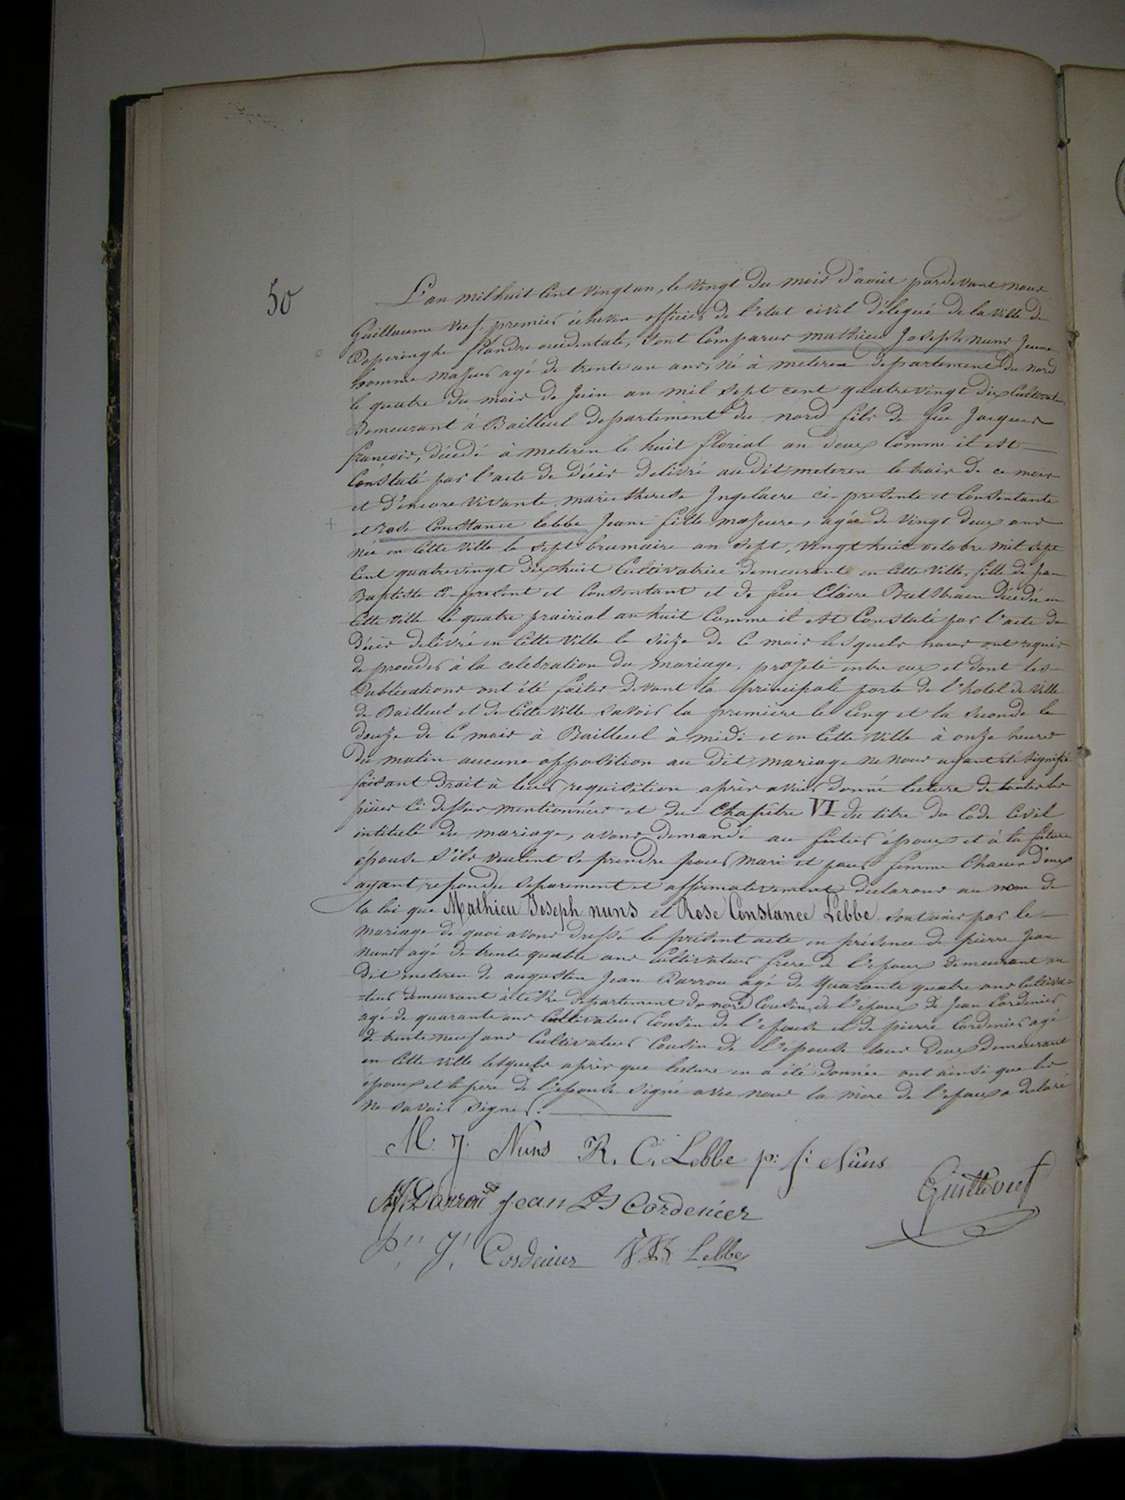 50
L'an mil huit cent vingt un, le vingt du mois d'août pardevant nous
Guillaume Vuef premier échevin officier de l'état civil délégué de la ville de
Poperinghe flandre occidentale, sont comparus mathieu Joseph nuns jeune
homme majeur agé de trente un ans, né à meteren departement du nord
le quatre du mois de juin an mil sept cent quatre vingt dix cultivateur
demeurant à Bailleul departement du nord fils de feu Jacques
françois, décédé à meteren le huit floréal an deux comme il est
constaté par l'acte de décès delivré au dit meteren le trois de ce mois
et d'encore vivante marie therese Ingelaere ci-presente et consentante
et rose Constance lebbe jeune fille majeure, agée de vingt deux ans
née en cette ville le sept brumaire an sept, vingt huit octobre mil sept
cent quatrevingt dix huit cultivatrice demeurant en cette ville, fille de jean
Baptiste ci-present et consentant et de feue Claire décédée en
cette ville le quatre prairial an huit comme il est constaté par l'acte de
décès délivré en cette ville le seize de ce mois lesquels nous ont requis
de proceder à la celebration du mariage, projeté entre eux et dont les
publications ont été faites devant la principale porte de l'hotel de ville
de Bailleul et de cette ville savoir la premiere le cinq et la seconde le
douze de ce mois à Bailleul à midi et en cette ville à onze heures
du matin aucune opposition au dit mariage ne nous ayant été signifié
faisant droit à leur requisition après avoir donné lecture de toutes les
pièces ci dessus mentionnées et du chapitre VI du titre du Code civil
intitulé du mariage, avons demandé au futur époux et à la future
épouse s'ils veulent se prendre pour mari et pour femme chacun d'eux
ayant repondu separement et affirmativement declarons au nom de
la loi que Mathieu Joseph nuns et Rose Constance Lebbe sont unis par le
mariage de quoi avons dressé le présent acte en présence de pierre jean
nuns agé de trente quatre ans cultivateur frere de l'époux demeurant au
dit meteren de augustin jean Darrou agé de quarante quatre ans cultiva-
teur demeurant à departement du nord cousin de l'époux de Jean Cordenier
agé de quarante ans cultivateur cousin de l'épouse et de pierre Cordenier agé
de trente neuf ans cultivateur cousin de l'épouse tous deux demeurant
en cette ville lesquels après que lecture en a été donnée ont ainsi que les
époux et le pere de l'épouse signé avec nous la mère de l'époux a declaré
ne savoir signer.
M. J. Nuns R. C. Lebbe p: j: Nuns
Darrou Jean Bs Cordenier Guill Vuef
Pre Je Cordenier JB Lebbe